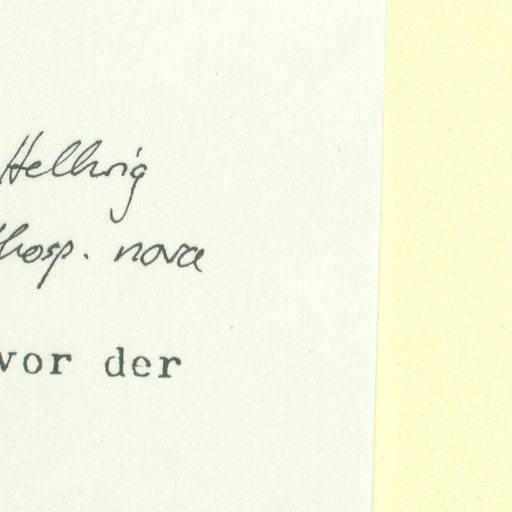 Hellwig
hosp. nova
vor der